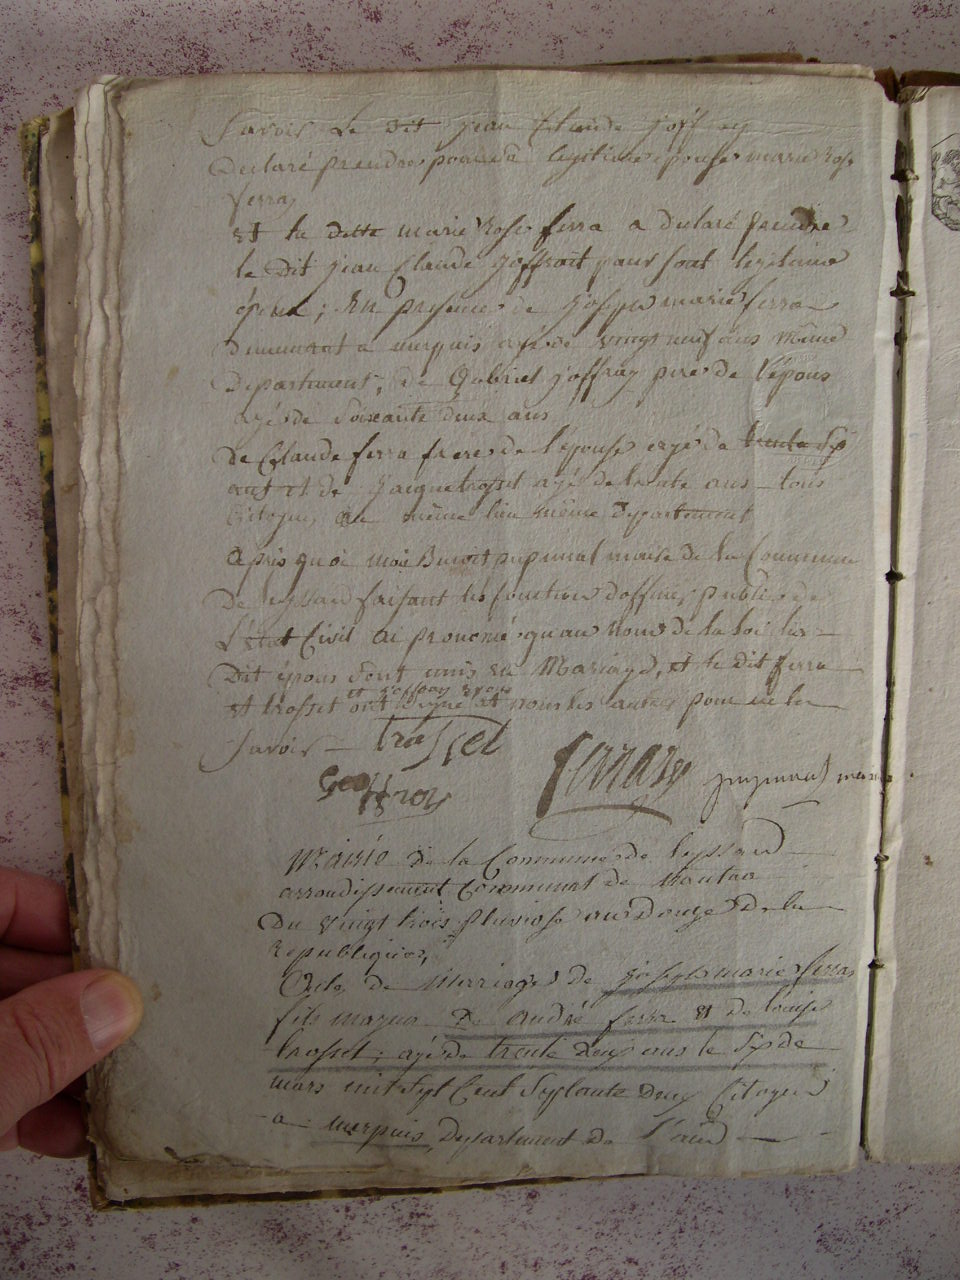 Savoir Le dit jean Claude joffrey
Declaré prendre pour sa legitime epouse marie Rose
ferra
Et la ditte marie Rose ferra a declaré prendre
le dit jean Claude joffroit pour sont legitime
époux ; En presence de joseph marie ferra
demeurant a merpuis agé de vingt neuf ans même
Departement, de Gabriel joffray pere de l'épous
agé de soixante deux ans
De Claude ferra frere de l'épouse agé de trente six
ans et de jacque trosset agé de trente ans tous
Citoyens du même lieu même Departement
Apres quoi moi Benoit maire de la Commune
De leyssard faisant les fonctions d'officier public de
L'état Civil ai prononcé qu'au nom de la loi les
Dit épous sont unis en Mariage, et le dit ferra
et trosset ont signé et nous les autres pour ne le
Savoir trossel
Geoffroy ferray maire
Mairie de la Commune de leyssard
arrondissement Communal de Nantua
Du vingt trois pluviose an Douze De la
Republique,
Acte de Mariage de joseph marie ferra
fils majeur De André ferra et de louise
trosset ; agé de trente Deux ans le six de
mars mil sept Cent Septante Deux Citoyen
a merpuis, Departement De l'ain